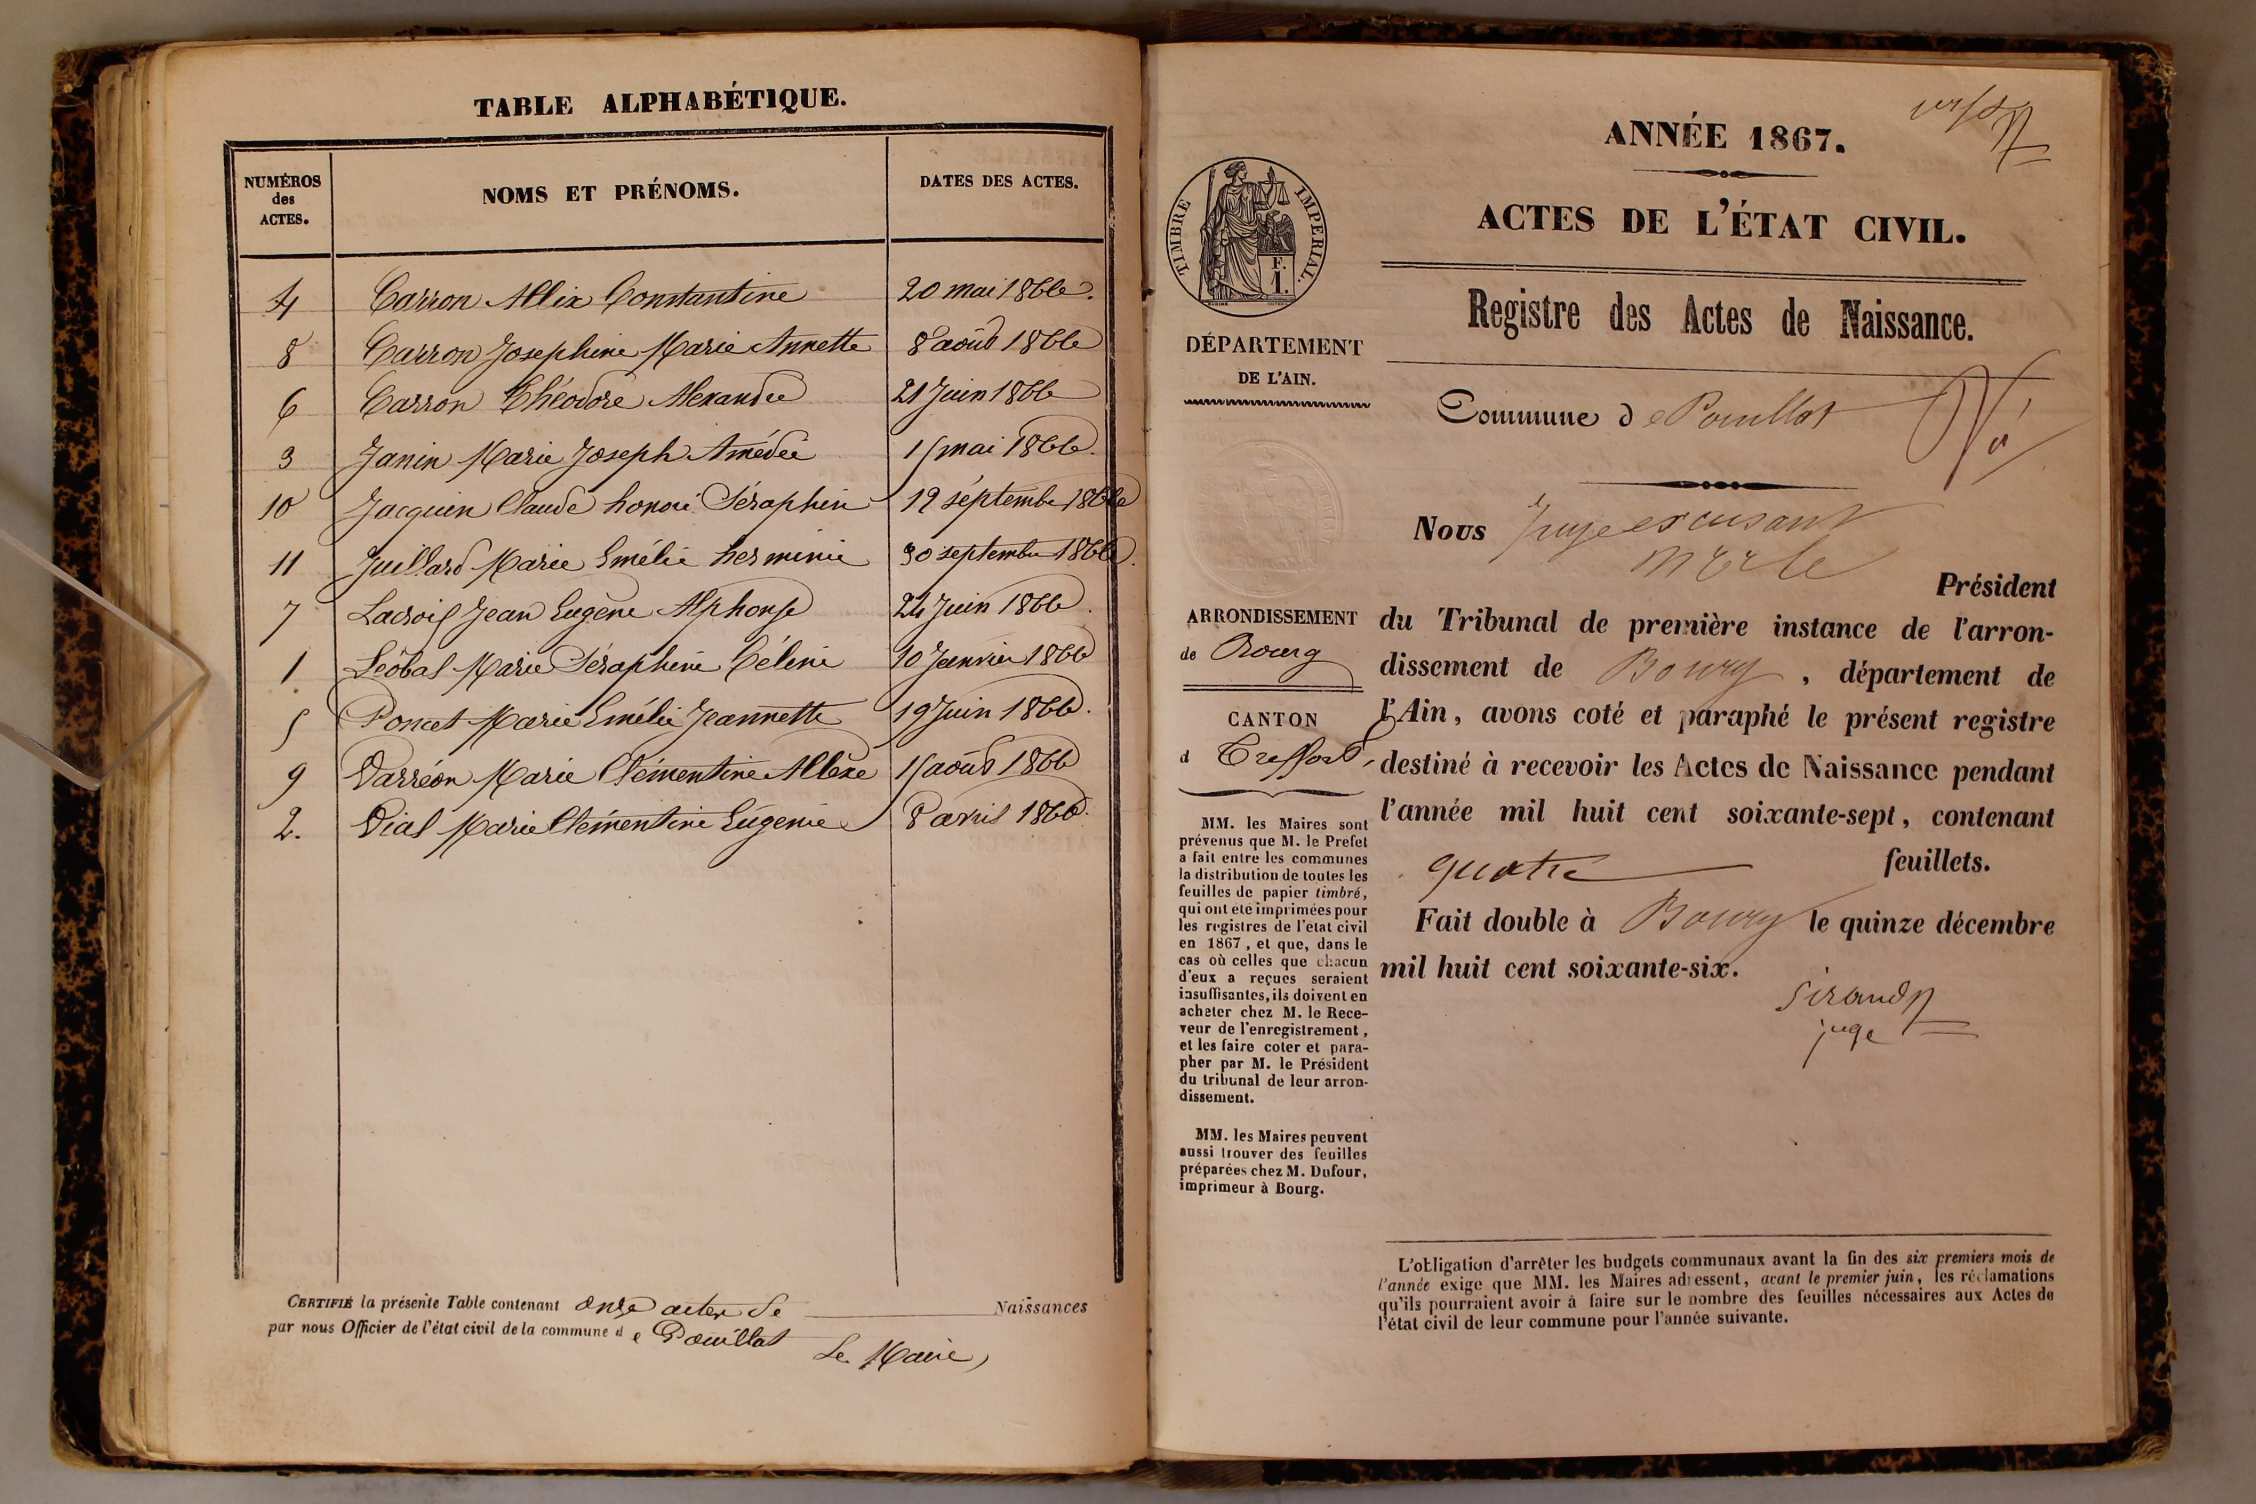 TABLE ALPHABÉTIQUE.
NUMÉROS des ACTES.
NOMS ET PRÉNOMS.
DATES DES ACTES.
4 Carron Allix Constantine 20 mai 1866.
8 Carron Josephine Marie Annette 8 août 1866
6 Carron Théodore Alexandre 21 Juin 1866
3 Janin Marie Joseph Amédée 15 mai 1866.
10 Jacquin Claude honoré Séraphin 12 septembre 1866
11 Juillard Marie Emélie herminie 30 septembre 1866.
7 Lacroix Jean Eugène Alphonse 24 Juin 1866.
1 Léobal Marie Séraphine Céline 10 Janvier 1866
5 Poncet Marie Emélie Jeannette 19 Juin 1866.
9 Varréon Marie Clémentine Allexe 15 août 1866
2. Vial Marie Clémentine Eugénie 8 avril 1866.
CERTIFIÉ la présente Table contenant onze actes de Naissances
par nous Officier de l'état civil de la commune de Pouillat
Le Maire,
ANNÉE 1867.
ACTES DE L'ÉTAT CIVIL.
TIMBRE IMPERIAL.
F.
1.
Registre des Actes de Naissance.
DÉPARTEMENT
DE L'AIN.
Commune de Pouillat
Vu
Nous Juge excusant
Merle
Président
ARRONDISSEMENT
de Bourg
CANTON
d Treffort,
du Tribunal de première instance de l'arron-
dissement de Bourg, département de
l'Ain, avons coté et paraphé le présent registre
destiné à recevoir les Actes de Naissance pendant
l'année mil huit cent soixante-sept, contenant
quatre feuillets.
Fait double à Bourg le quinze décembre
mil huit cent soixante-six.
Sirand
juge
MM. les Maires sont
prévenus que M. le Prefet
a fait entre les communes
la distribution de toutes les
feuilles de papier timbré,
qui ont été imprimées pour
les registres de l'etat civil
en 1867, et que, dans le
cas où celles que chacun
d'eux a reçues seraient
insuffisantes, ils doivent en
acheter chez M. le Rece-
veur de l'enregistrement,
et les faire coter et para-
pher par M. le Président
du tribunal de leur arron-
dissement.
MM. les Maires peuvent
aussi trouver des feuilles
préparées chez M. Dufour,
imprimeur à Bourg.
L'obligation d'arrêter les budgets communaux avant la fin des six premiers mois de
l'année exige que MM. les Maires adressent, avant le premier juin, les réclamations
qu'ils pourraient avoir à faire sur le nombre des feuilles nécessaires aux Actes de
l'état civil de leur commune pour l'année suivante.